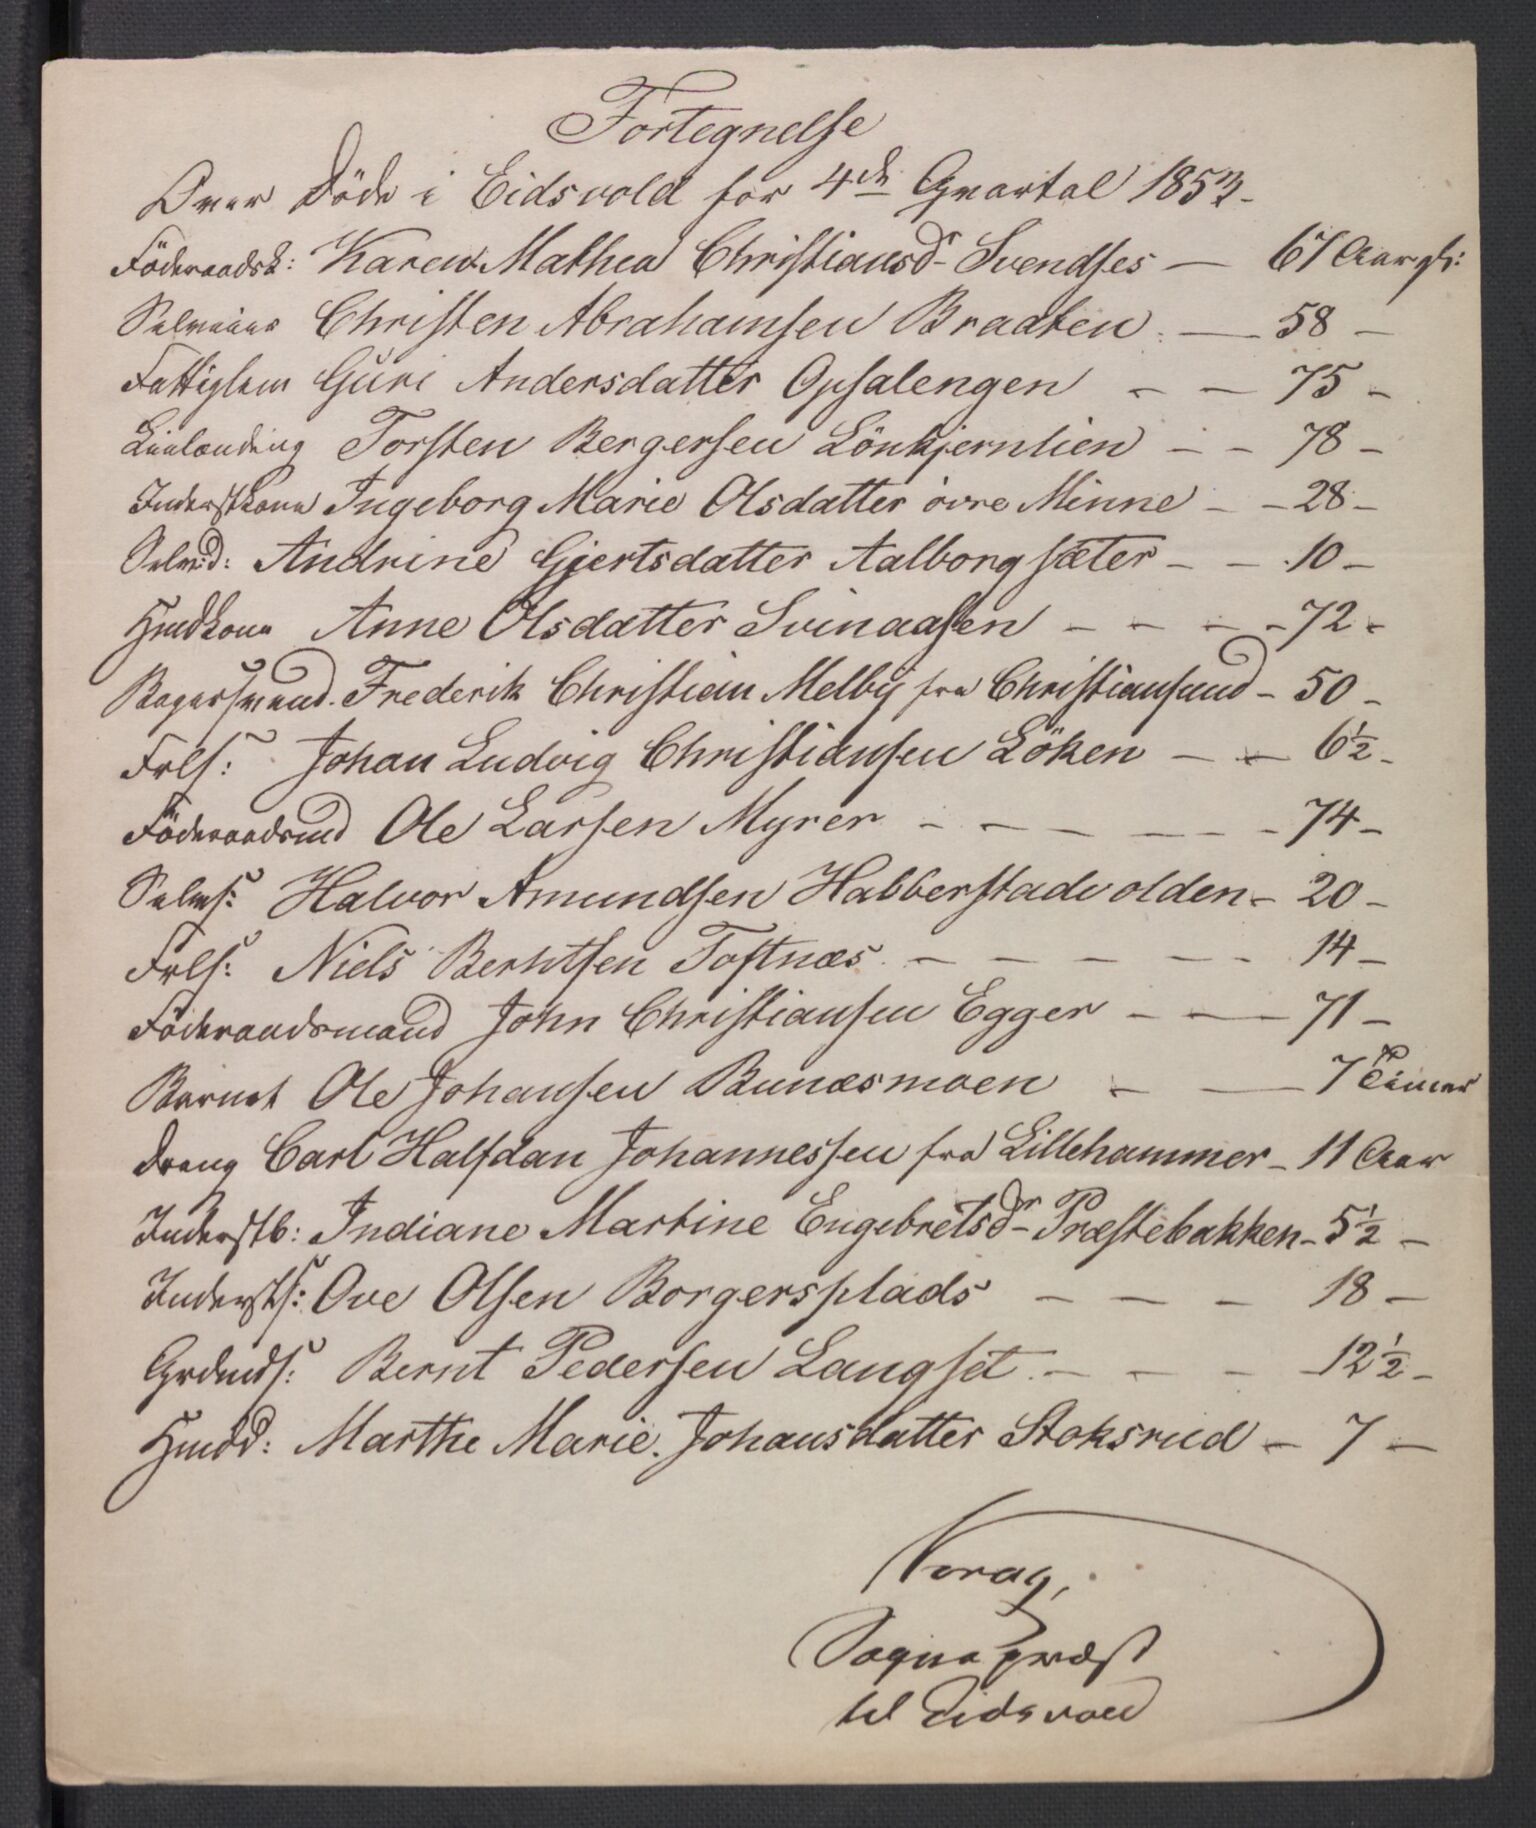 Fortegnelse
Over Döde i Eidsvold for 4de Qvartal 1853.
Föderaadsk: Karen Mathea Christiansdr Svendses — 67 Aar gl:
Selveier Christen Abrahamsen Braaten. — 58 —
Fattiglem Guri Andersdatter Opsalengen — — 75 —
Huslænding Torsten Bergersen Lönkjernlien — — 78 —
Inderstkone Ingeborg Marie Olsdatter övre Minne — — 28 —
Selvd: Andrine Gjertsdatter Aalborgsæter — — 10 —
Hmdkone Anne Olsdatter Svinaasen — — — — 72 —
Bagersvend. Frederik Christian Melby fra Christiansund — 50 —
Frls: Johan Ludvig Christiansen Löken — — 6½ —
Föderaadsmd Ole Larsen Myrer — — — — — — 74 —
Selvs: Halvor Amundsen Habberstadvolden — 20 —
Frls: Niels Berntsen Toftnæs. — — — — — — 14 —
Föderaadsmand John Christiansen Egger — — — 71 —
Barnet Ole Johansen Bunæsmoen — — 7 Timer
Dreng Carl Halfdan Johannessen fra Lillehammer — 11 Aar
Inderstb: Indiane Martine Engebretsdr Præstebakken — 5½ —
Indersts: Ove Olsen Borgersplads — — — 18 —
Grdmds: Bernt Pedersen Langset. — — — 12½ —
Hmdd: Marthe Marie Johansdatter Stoksrud — 7 —
Sognepræst
til Eidsvold